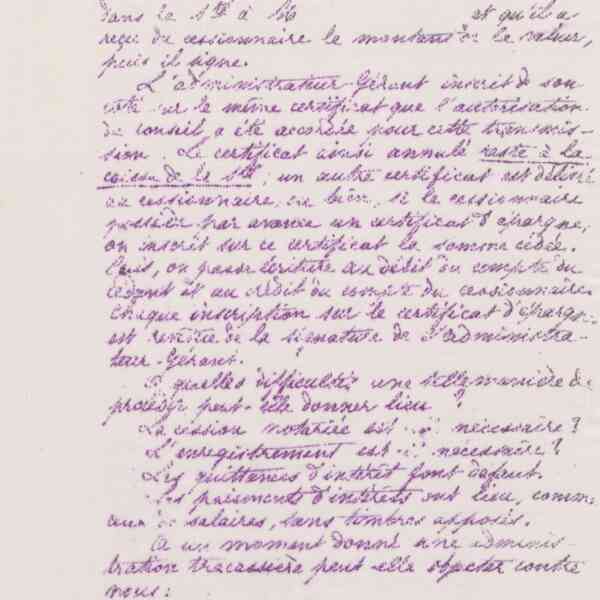 dans la Sté à M et qu'il a
reçu du cessionnaire le montant de la valeur,
puis il signe.
L'administrateur-Gérant inscrit de son
côté sur le même certificat que l'autorisation
du conseil a été accordée pour cette transmis-
sion. Le certificat ainsi annulé reste à la
caisse de la Sté; un autre certificat est délivré
au cessionnaire, ou bien, si le cessionnaire
possède par avance un certificat d'épargne,
on inscrit sur ce certificat la somme cédée.
Puis, on passe écriture au débit du compte du
cédant et au crédit du compte du cessionnaire.
Chaque inscription sur le certificat d'épargne
est revêtue de la signature de l'administra-
teur-Gérant.
A quelles difficultés une telle manière de
procéder peut-elle donner lieu ?
La cession notariée est-il nécessaire ?
L'enregistrement est-il nécessaire ?
Les quittances d'intérêt font défaut.
Les paiements d'intérêts ont lieu, comme
ceux de salaires, sans timbres apposés.
A un moment donné une adminis-
tration tracassière peut-elle objecter contre
nous :